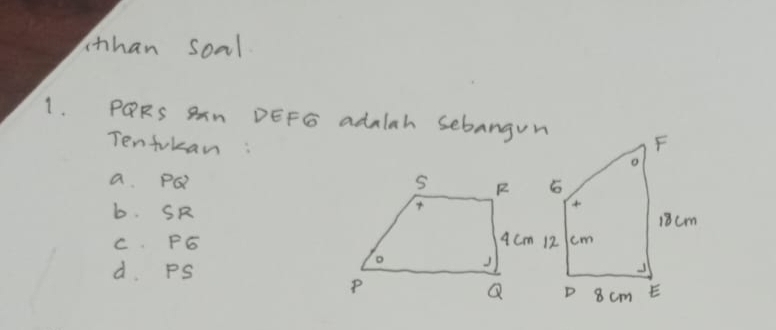 tihan soal.
1. PQRS dan DEFG adalah sebangun
Tentukan :
a. PQ
b. SR
c. PG
d. PS
S R
+
4 cm
o
P Q
F
o
G
+
12 cm
18 cm
D 8 cm E